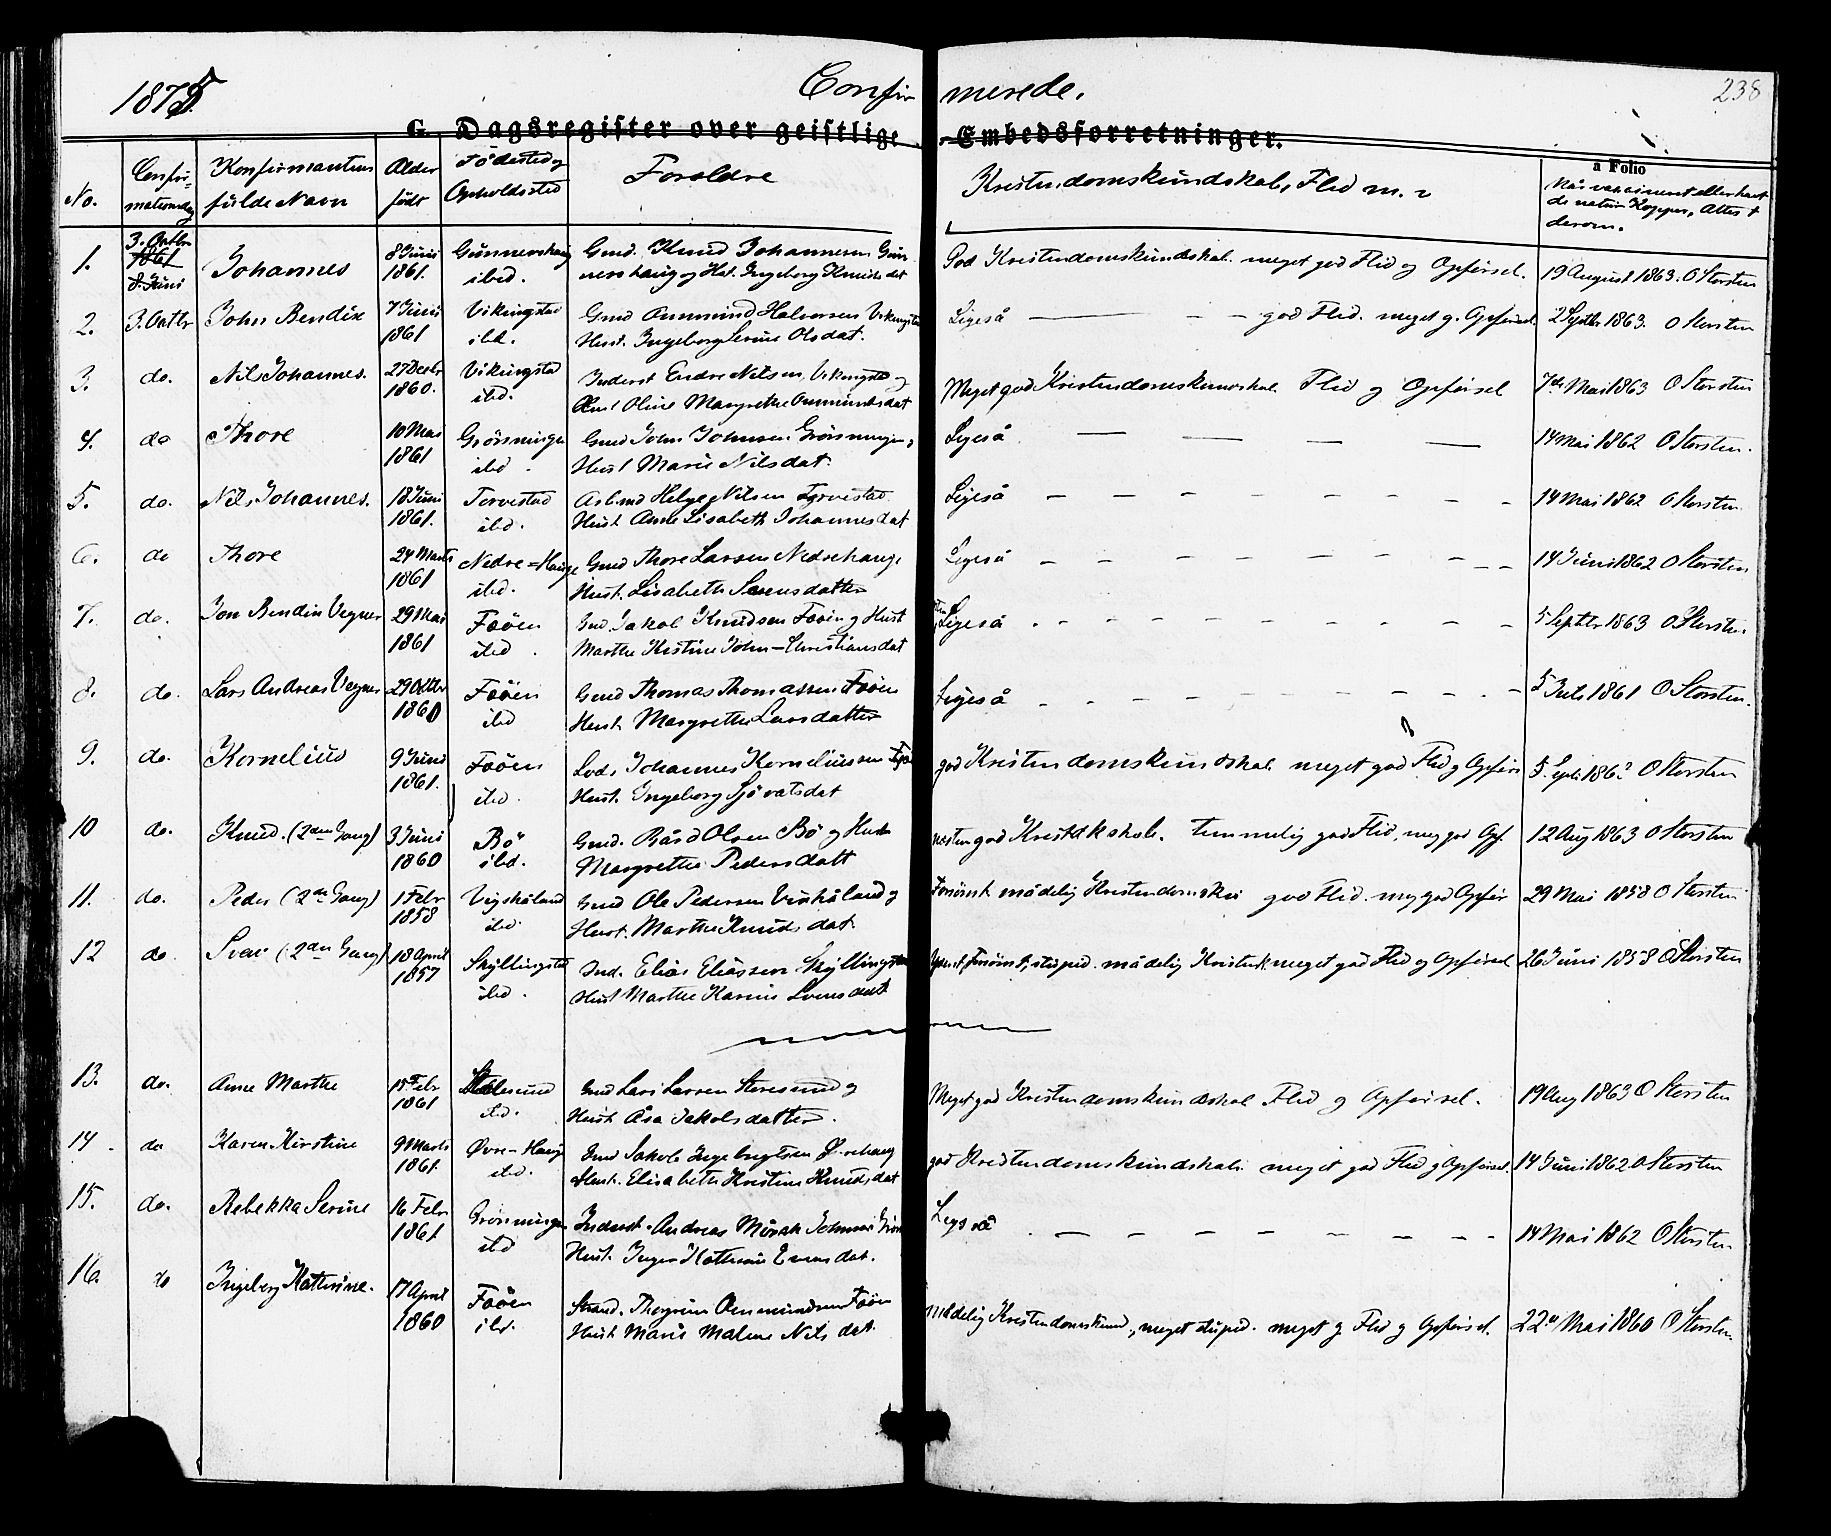 1875
Confirmerede.
238
G. Dagsregister over geistlige Embedsforretninger.
a Folio
No.
Confirmationsdag
Konfirmantens fulde Navn
Alder født
Födested og Opholdssted
Foreldre
Kristendomskundskab, Flid m. v
Når vaccineret eller havt de naturl Kopper, Attest derom.
1. 3. Octbr 1861 8 Juni Johannes 8 Juni 1861. Gunnershaug ibid. Gmd. Knud Johannesen Gunnershaug og Hst. Ingeborg Knudsdat God Kristendomskundskab. meget god Flid og Opførsel. 19 August 1863. O Storsten
2. 3. Octbr John Bendix 7 Juni 1861 Vikingstad ibd. Gmd Ommund Halvorsen Vikingstad Hust. Ingeborg Serine Olsdat. Ligeså — - - god Flid. meget g. Opførsel 2 Septbr 1863. O Storsten
3. do. Nils Johannes. 27 Decbr 1860. Vikingstad ibd. Inderst Endre Nilsen Vikingstad og Hust Oline Margrethe Ommundsdat Meget god Kristendomskundskab Flid og Opførsel 7de Mai 1863 O Storsten
4. do Thore 10 Mai 1861 Grönningen ibd. Gmd John Johnsen Grönningen, Hust Marie Nilsdat. Ligeså — — — — 14 Mai 1862 O Storsten.
5. do. Nils Johannes. 18 Juni 1861. Torvestad ibd. Arb.md Helge Nilsen Torvestad Hust. Anne Lisabeth Johannesdat Ligeså - - - - - - - - 14 Mai 1862 O Storsten
6. do Thore 24 Marts 1861 Nedre-Hauge ibd. Gmd Thore Larsen Nedrehauge Hust. Lisabeth Svensdatter Ligeså - - - - - - - - - 14 Juni 1862 O Storsten
7. do. Jon Bendix Vegner 29 Mai 1861 Føöen ibd. Gmd Jakob Knudsen Føöen og Hust Marthe Kistine John-Christiansdat Ligeså - - - - - - - - - 5 Septbr 1863 O Storsten.
8. do. Lars Andreas Vegner 29 Octbr 1860 Føöen ibd Gmd Thomas Thomassen Føöen Hust. Margrethe Larsdatter Ligeså - - - - - - - - - 5 Juli 1861 O Storsten.
9. do. Kornelius 9 Juni 1861. Føöen ibd. Lods Johannes Korneliussen Føöen Hust. Ingeborg Sjovatsdat god Kristendomskundskab meget god Flid og Opførs 5. Septb. 1862 O Storsten
10 do. Knud. (2den Gang) 3 Juni 1860 Bö ibd. Gmd. Bård Olsen Bö og Hust Margrethe Pedersdatt næsten god Kristdkskab. temmelig god Flid, meg god Opf. 12 Aug 1863 O Storsten
11. do. Peder (2den Gang) 1 Febr 1858 Vigshåland ibd. Gmd Ole Pedersen Vikshåland og Hust. Marthe Knudsdat. Forsömt mådelig Kristendomsku god Flid. meg god Opfør 29 Mai 1858 O Storsten
12 do. Svai (2den Gang) 18 April 1857 Skyllingstad ibd. Ind. Elias Eliassen Skyllingstad Hust Marthe Karine Svensdat Forsömt, stupid. mådelig Kristenk. meget god Flid og Opførsel 26 Juni 1858 O Storsten
13. do. Anne Marthe 15 Febr 1861 Storesund ibd. Gmd Lars Larsen Storesund og Hust Åsa Jakobsdatter. Meget god Kristendomskundskab Flid og Opførsel. 19 Aug 1863 O Storsten
14. do Karen Kirstine 9 Marts 1861. Øvre-Hauge ibd. Gmd Jakob Ingebrigtsen Ørehaug Hust. Elisabeth Kristine Knudsdat god Kristendomskundskab. meget god Flid og Opførsel. 14 Juni 1862 O Storsten
15. do. Rebekka Serine 16 Febr 1861 Grönningen ibd Inderst. Andreas Mörak Johnsen Grön Hust. Inger Kathrine Evensdat. Ligeså - - - - - - - - 14 Mai 1862 O Storsten
16. do Ingeborg Kathrine. 17 April 1860 Føöen ibd. Strand. Thorgrim Ommundsen Føöen Hust Maris Malene Nilsdat. Mådelig Kristendomskund., meget stupid. meget g Flid og Opførsel. 22de Mai 1860 O Storsten